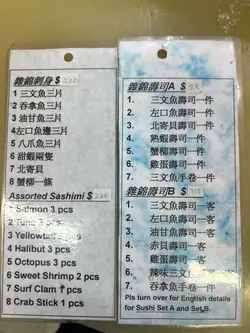 雜錦刺身 $
1 三文魚三片
2 吞拿魚三片
3 油甘魚三片
4 左口魚邊三片
5 八爪魚三片
6 甜蝦兩隻
7 北寄貝
8 蟹柳一條
Assorted Sashimi $
1 Salmon 3 pcs
2 Tuna 3 pcs
3 Yellowtail 3 pcs
4 Halibut 3 pcs
5 Octopus 3 pcs
6 Sweet Shrimp 2 pcs
7 Surf Clam 1 pcs
8 Crab Stick 1 pcs
雜錦壽司A $
1. 三文魚壽司一件
2. 左口魚壽司一件
3. 油甘魚壽司一件
4. 北寄貝壽司一件
5. 熟蝦壽司一件
5. 蟹柳壽司一件
6. 雞蛋壽司一件
7. 三文魚手卷一件
雜錦壽司B $
1. 三文魚壽司一客
2. 左口魚壽司一客
3. 油甘魚壽司一客
4. 赤貝壽司一客
5. 雞蛋壽司一客
6. 辣味三文
7. 吞拿魚手卷一件
Pls turn over for English details
for Sushi Set A and Set B.